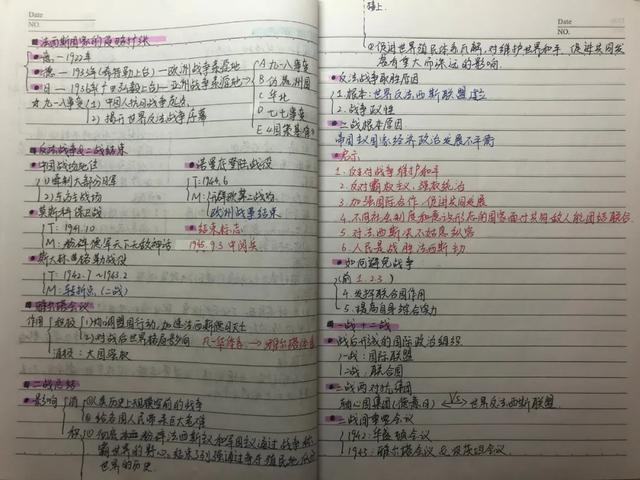 Date
NO.
法西斯国家的侵略扩张
意—1922年
德—1933年(希特勒上台)—欧洲战争策源地
日—1936年(广田弘毅上台)—亚洲战争策源地
A 九一八事变
B 伪满洲国
C 华北
D 七七事变
☆九一八事变(1) 中国人抗日战争起点
2) 揭开世界反法战争序幕
反法战争及二战结束
中国战场地位
1) 牵制大部分日军
2) 东方主战场
莫斯科保卫战
T: 1941.10
M: 粉碎德军天下无敌神话
斯大林格勒战役
T: 1942.7~1943.2
M: 转折点(二战)
诺曼底登陆战役
T: 1944.6
M: 开辟欧第二战场
欧洲战争结束
结束标志
1945.9.3 中阅兵
雅尔塔会议
作用
积极
1) 协调盟国行动,加速法西斯德国灭亡
2) 对战后世界格局影响
消极: 大国强权
二战总结
影响
消
①人类历史上规模空前的战争
②给各国人民带来巨大危害
积
①彻底粉碎法西斯主义和军国主义通过战争称
霸世界的野心,结束了列强通过争夺殖民地
世界的历史
接上.
Date
NO.
②促进世界殖民体系瓦解,对维护世界和平,促进共同发
展有重大而深远的影响.
反法战争取胜原因
1. 根本: 世界反法西斯联盟建立
2. 战争正义性
二战根本原因
帝国主义国家经济政治发展不平衡
启示
1. 反对战争维护和平
2. 反对霸权主义,强权政治
3. 加强国际合作,促进共同发展
4. 不同社会制度和意识形态的国家面对共同敌人能团结联合
5. 对法西斯决不姑息纵容
6. 人民是战胜法西斯主力
如何避免战争
(前1.2.3)
4. 发挥联合国作用
5. 提高自身综合实力
一战+二战
战后形成的国际政治组织
一战: 国际联盟
二战: 联合国
二战两对抗集团
轴心国集团(德意日) VS 世界反法西斯联盟
二战间重要会议
1942: 华盛顿会议
1945: 雅尔塔会议 & 波茨坦会议